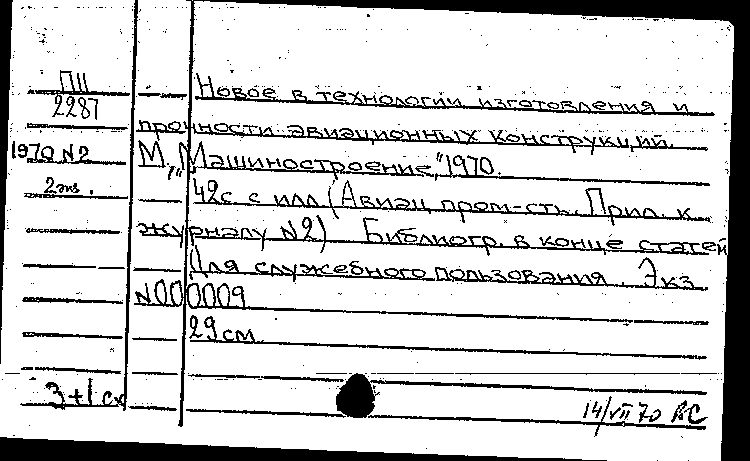 ПII
2287
1970 N2
2экз.
Новое в технологии изготовления и
прочности авиационных конструкций.
М., "Машиностроение," 1970.
42с. с илл (Авиац. пром-сть. Прил. к
журналу N2) Библиогр. в конце статей
Для служебного пользования. Экз.
N000009
29см.
3+1 ск
14/VII 70 ВС